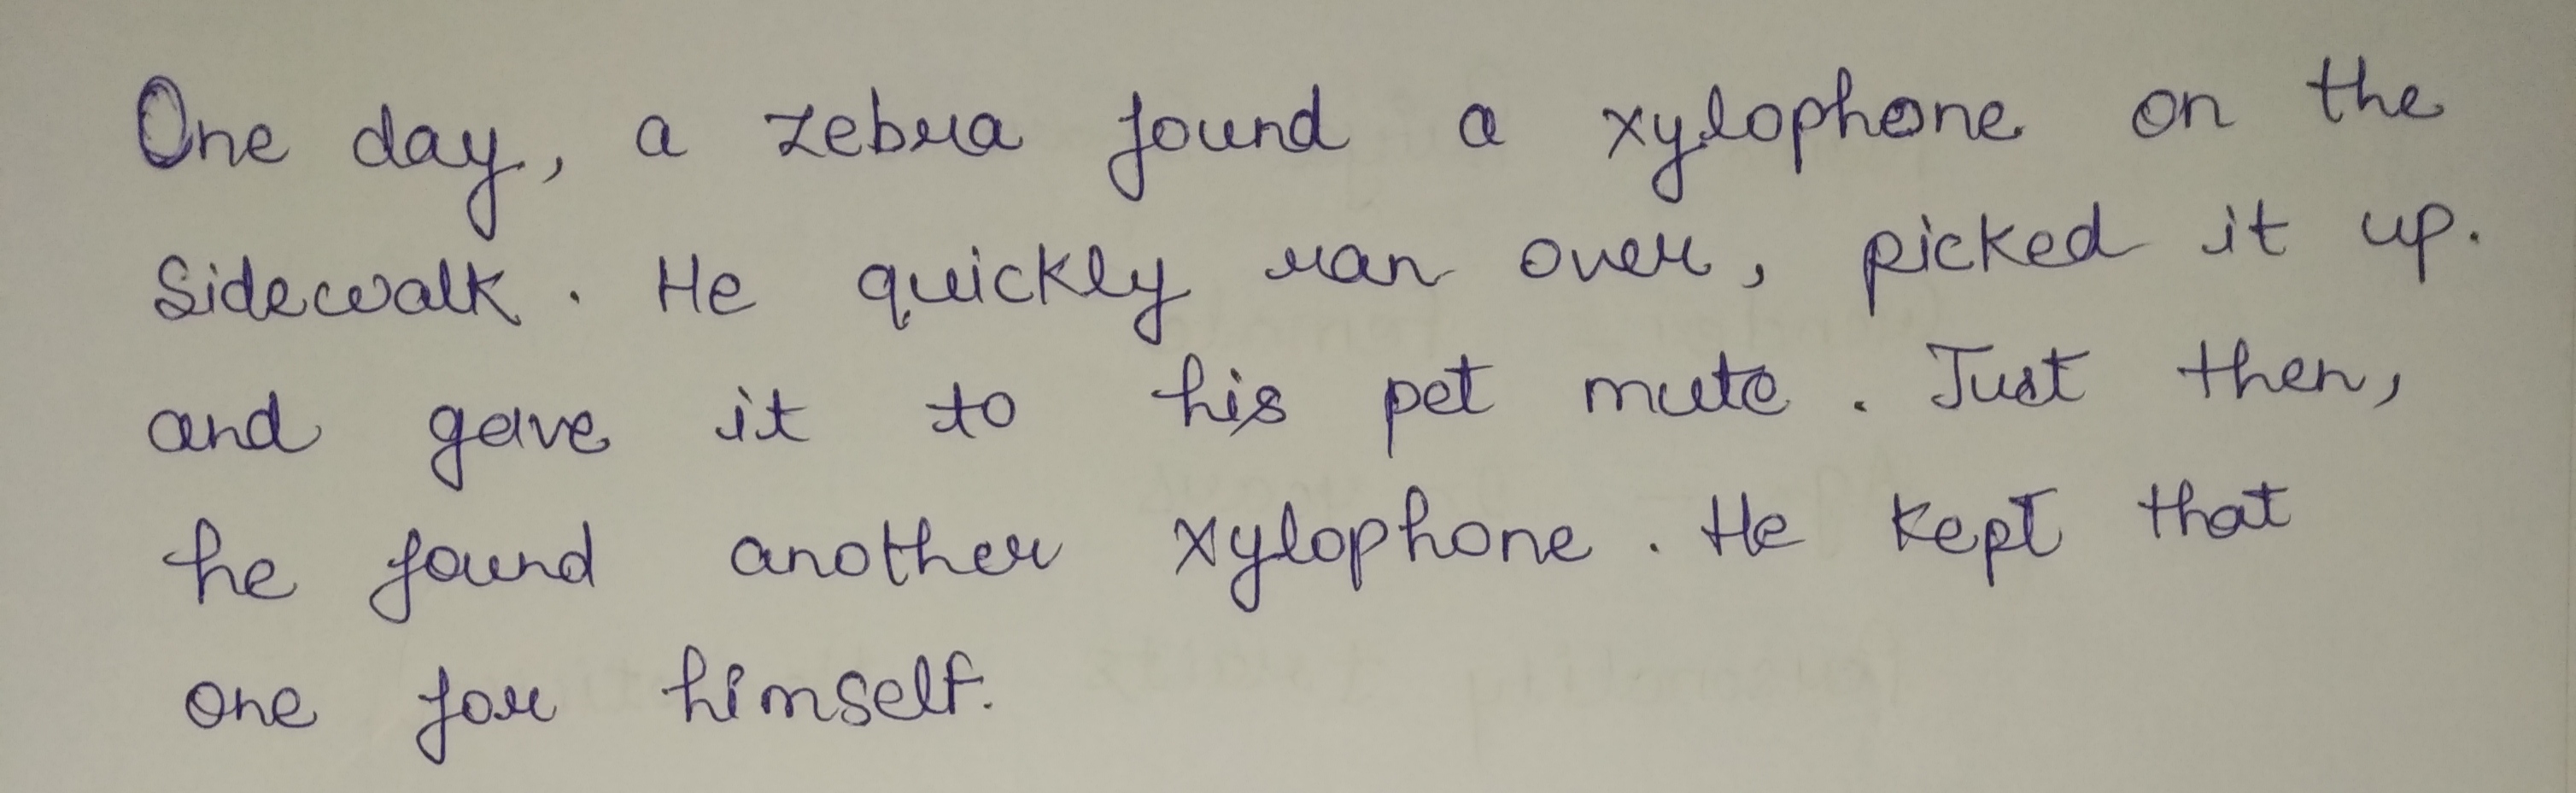 One day, a zebra found a xylophone on the
Sidewalk. He quickly ran over, picked it up.
and gave it to his pet mute. Just then,
he found another xylophone. He kept that
one for himself.